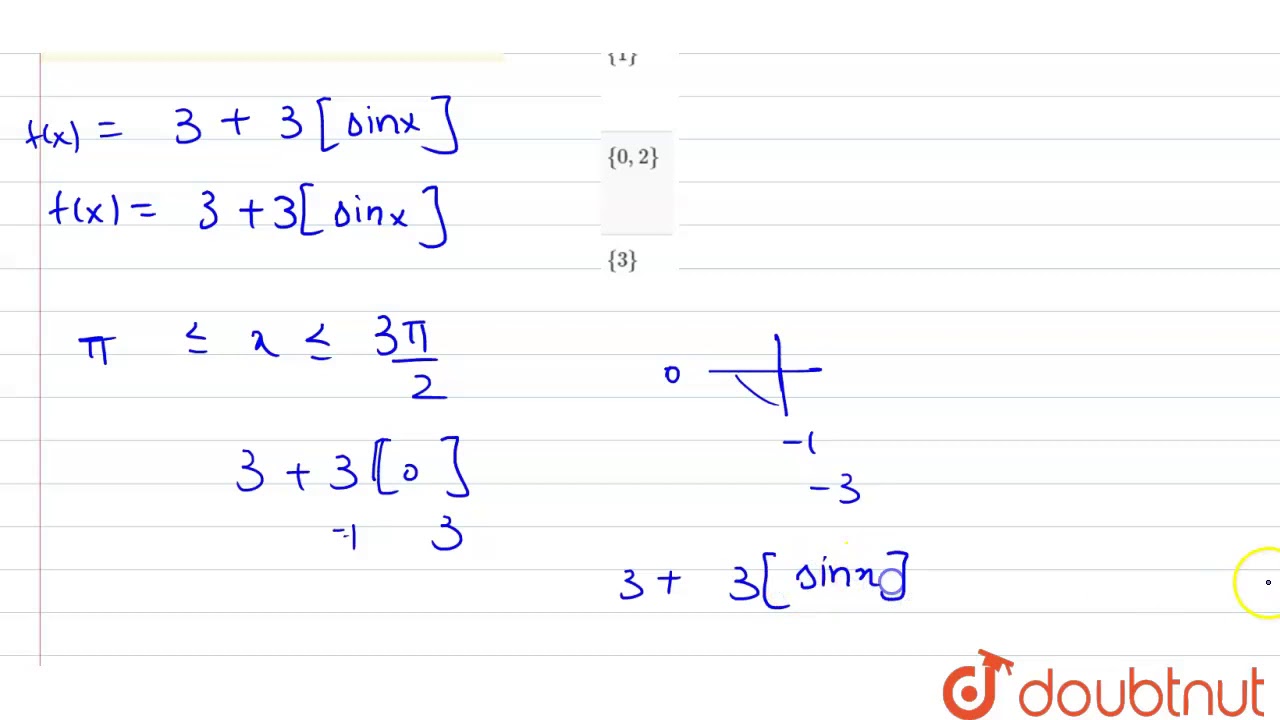 {1}
f(x) = 3 + 3 [sinx]
{0, 2}
f(x) = 3 + 3 [sinx]
{3}
π ≤ x ≤ 3π/2
0
-1
3 + 3 [0]
-3
-1 3
3 + 3 [sinx]
doubtnut